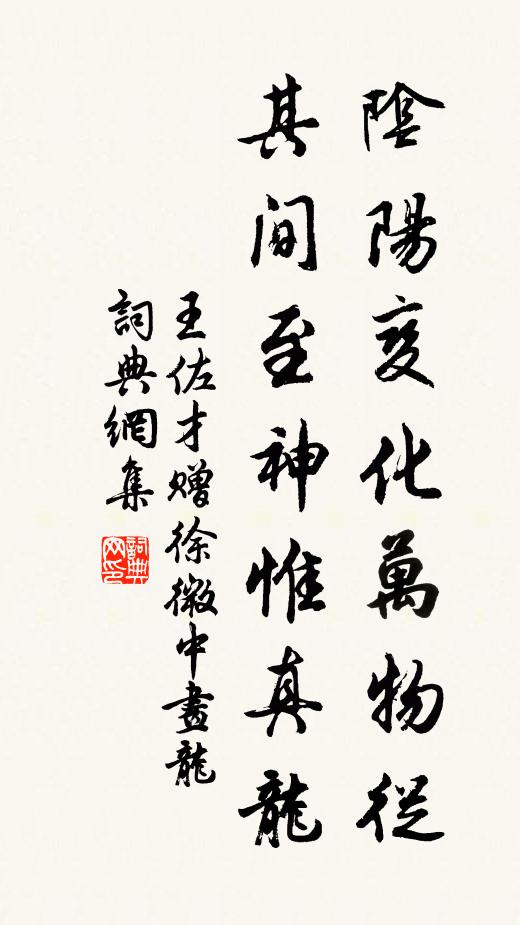 陰陽变化萬物從
其间至神惟真龍
王佐才赠徐微中畫龍
詞典網集
詞典網印